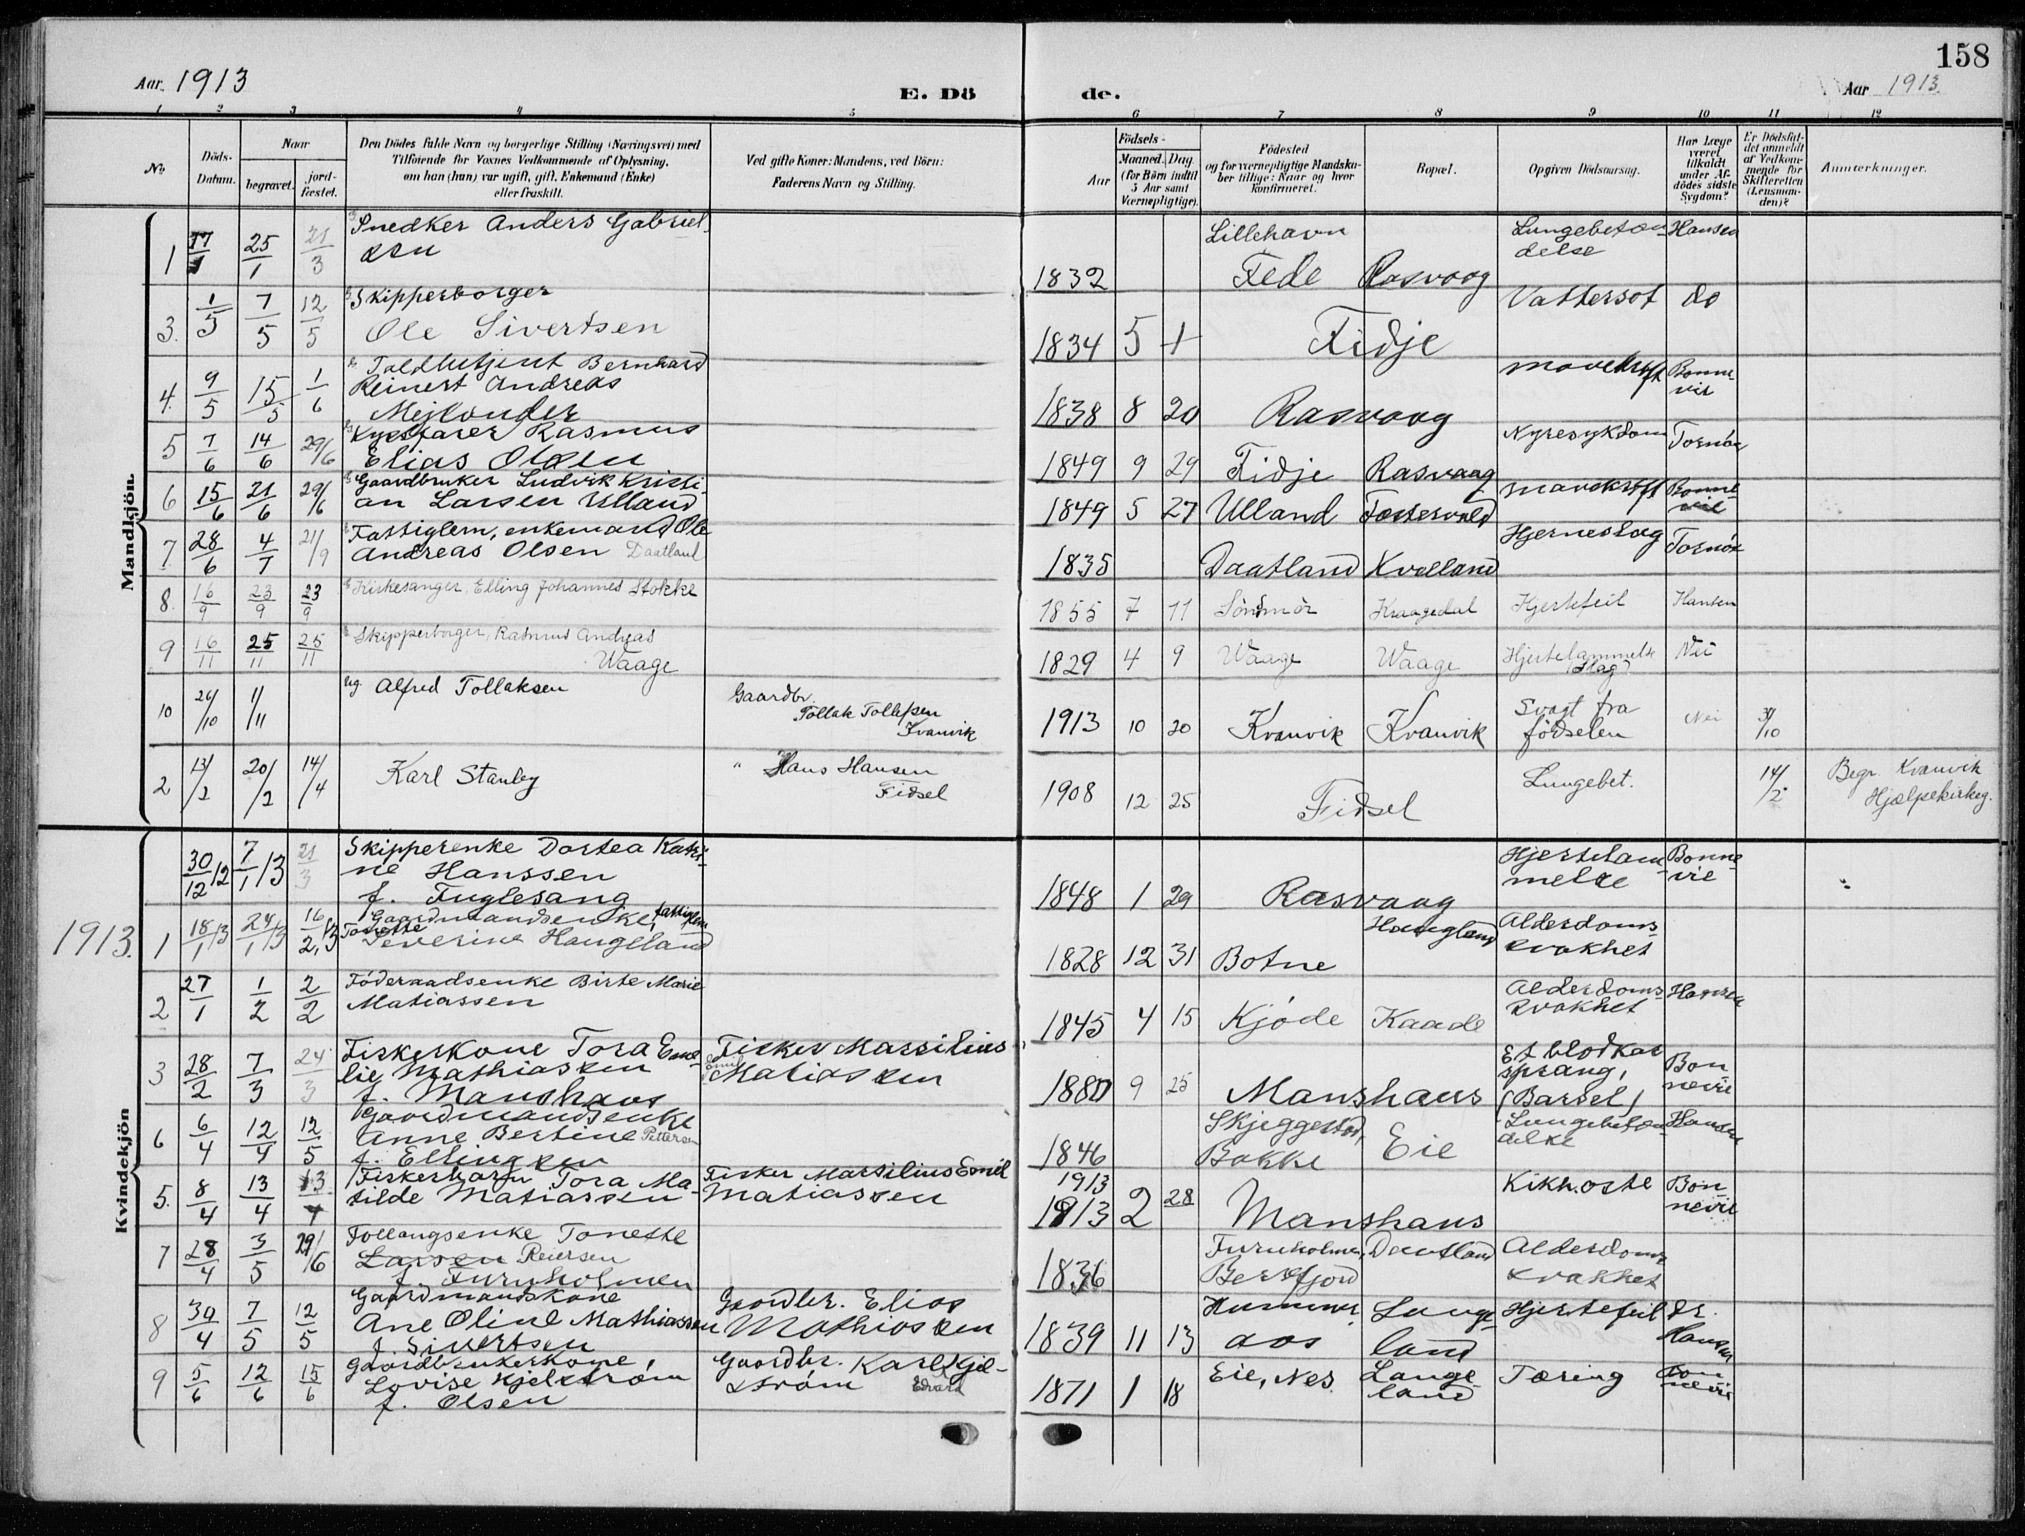 158
Aar 1913
E. Dö
de.
Aar 1913
1 2 3 4 5 6 7 8 9 10 11 12
No
Döds-Datum.
Naar
begravet.
jord-fæstet.
Den Dödes fulde Navn og borgerlige Stilling (Næringsvei) med
Tilföiende for Voxnes Vedkommende af Oplysning,
om han (hun) var ugift, gift, Enkemand (Enke)
eller fraskilt.
Ved gifte Koner: Mandens, ved Börn:
Faderens Navn og Stilling.
Födsels-
Aar
Maaned. Dag.
(for Börn indtil
5 Aar samt
Værnepligtige).
Födested
og for værnepligtige Mandska-
ber tillige: Naar og hvor
konfirmeret.
Bopæl.
Opgiven Dödsaarsag.
Har Læge
været
tilkaldt
under Af-
dödes sidste
Sygdom?
Er Dödsfal-
det anmeldt
af Vedkom-
mende for
Skifteretten
(Lensman-
den)?
Anmerkninger.
Mandkjön.
1 17/1 25/1 21/3 Snedker Anders Gabriel
sen
1832 Lillehavn
Fede Rasvaag Lungebetæn
delse Hansen
3. 1/5 7/5 12/5 Skipperborger
Ole Sivertsen
1834 5 1 Fidje Vattersot do
4. 9/5 15/5 1/6 Toldbetjent Bernhard
Reinert Andreas
Mejlænder
1838 8 20 Rasvaag Mavekræft Bonne
vie
5 7/6 14/6 29/6 Rasmus
Elias Olsen
1849 9 29 Fidje Rasvaag Nyresykdom Tornöe
6 15/6 21/6 29/6 Gaardbruker Ludvik Kristi
an Larsen Ulland
1849 5 27 Ulland Mavekræft Bonne
vie
7. 28/6 4/7 21/9 Fattiglem, enkemand Ole
Andreas Olsen Daatland
1835 Daatland Kvelland Hjerneslag Tornöe
8. 16/9 23/9 23/9 Kirkesanger, Elling Johannes Stokke
1855 7 11 Söndmör Kraagedal Hjertefeil Hansen
9 16/11 25/11 25/11 Skipperborger, Rasmus Andreas
Waage
1829 4 9 Waage Waage Hjertelammelse
(Slag) Nei
10 26/10 1/11 ug. Alfred Tollaksen Gaardbr.
Tollak Tollefsen
Kvanvik
1913 10 20 Kvanvik Kvanvik Svagt fra
födselen Nei 31/10
2 13/2 20/2 14/4 Karl Stanley " Hans Hansen
Fidsel
1908 12 25 Fidsel Lungebet. 14/2 Begr. Kvanvik
Hjælpekirkeg.
Kvindekjön
30/12 12 7/1 13 21/3 Skipperenke Dortea Katri-
ne Hanssen
f. Fuglesang
1848 1 29 Rasvaag Hjertelam
melse Bonne
vie
1913. 1 18/1 13 24/1 13 16/2 13 Gaardmandsenke, fattiglem
Tonette
Severine Haugeland
1828 12 31 Botne Haugland Alderdoms-
svakhet
2 27/1 1/2 2/2 Föderaadsenke Birte Marie
Matiassen
1845 4 15 Kjöde Kaade Alderdoms-
svakhet Hansen
3 28/2 7/3 24/3 Fiskerkone Tora Emi
lie Mathiassen
f. Manshaus Fisker Marsilius
Emil
Matiassen
1880 9 25 Manshaus Et blodkar
sprang,
(Barsel) Bon
nevie
6 6/4 12/4 12/5 Gaardmandsenke
Anne Bertine Pettersen
f. Ellingsen
1846 Skjeggestad,
Bakke Eie Lungebetæn-
delse Hansen
5. 8/4 13/4 13/4 Fiskerbarn Tora Ma-
tilde Matiassen Fisker Marsilius Emil
Matiassen
1913
1913 2 28 Manshaus Kikhoste Bon
nevie
7 28/4 3/5 29/6 Follaugsenke Tonette
Larsen Reiersen
f. Furuholmen
1836 Furuholmen,
Berrefjord Daatland Alderdoms
svakhet
8 30/4 7/5 12/5 Gaardmandskone
Ane Oline Mathiassen
f. Sivertsen Gaardbr. Elias
Mathiassen
1839 11 13 Hummer
aas Lange
land Hjertefeil dr.
Hansen
9 5/6 12/6 15/6 Gaardbrukerkone,
Lovise Kjelström
f. Olsen Gaardbr. Karl Kjel-
ström Edvard
1871 1 18 Eie, Nes Lange
land Tæring Bon
nevie